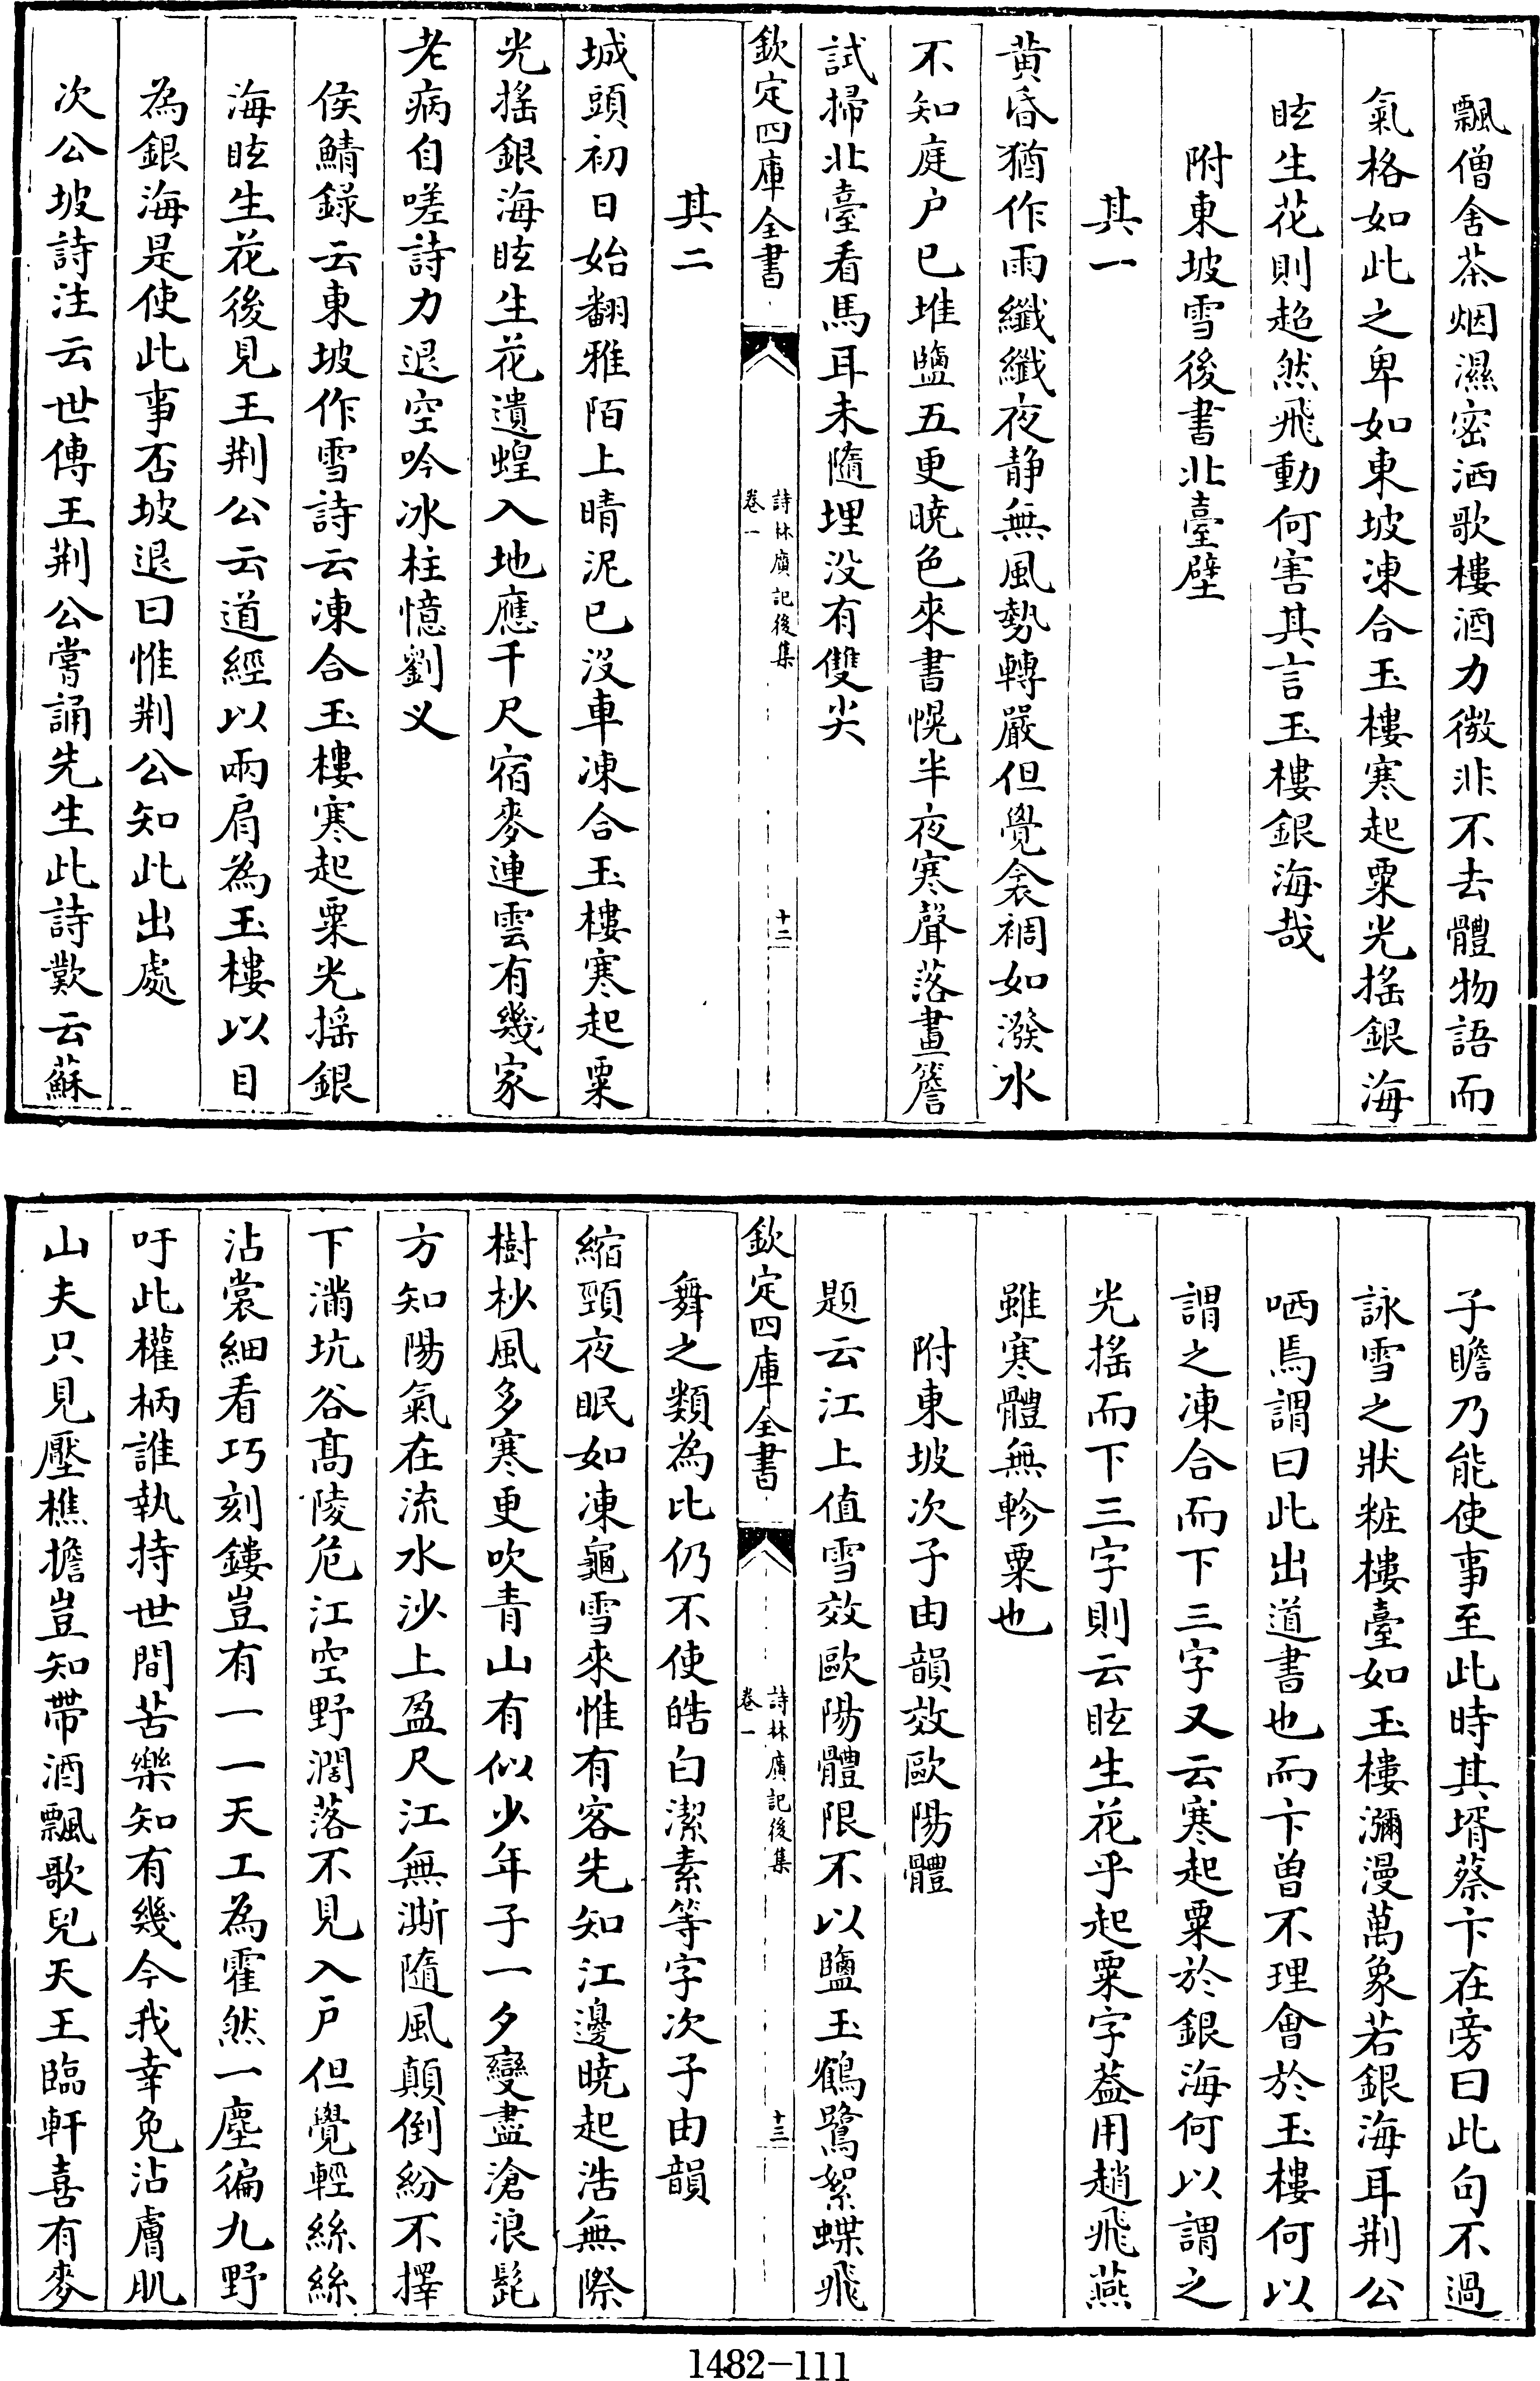 飄僧舍茶烟濕密洒歌樓酒力微非不去體物語而
氣格如此之卑如東坡凍合玉樓寒起粟光搖銀海
眩生花則超然飛動何害其言玉樓銀海哉
附東坡雪後書北臺壁
其一
黄昏猶作雨纖纖夜静無風勢轉嚴但覺衾裯如潑水
不知庭户已堆鹽五更曉色來書幌半夜寒聲落畫簷
試掃北臺看馬耳未隨埋没有雙尖
欽定四庫全書
詩林廣記後集
卷一
十二
其二
城頭初日始翻雅陌上晴泥已沒車凍合玉樓寒起粟
光搖銀海眩生花遺蝗入地應千尺宿麥連雲有幾家
老病自嗟詩力退空吟冰柱憶劉义
侯鯖録云東坡作雪詩云凍合玉樓寒起粟光摇銀
海眩生花後見王荆公云道經以兩肩為玉樓以目
為銀海是使此事否坡退曰惟荆公知此出處
次公坡詩注云世傳王荆公嘗誦先生此詩歎云蘇
子瞻乃能使事至此時其壻蔡卞在旁曰此句不過
詠雪之狀粧樓臺如玉樓瀰漫萬象若銀海耳荆公
哂焉謂曰此出道書也而卞曾不理會於玉樓何以
謂之凍合而下三字又云寒起粟於銀海何以謂之
光搖而下三字則云眩生花乎起粟字葢用趙飛燕
雖寒體無軫粟也
附東坡次子由韻效歐陽體
題云江上值雪效歐陽體限不以鹽玉鶴鷺絮蝶飛
欽定四庫全書
詩林廣記後集
卷一
十三
舞之類為比仍不使皓白潔素等字次子由韻
縮頸夜眠如凍龜雪來惟有客先知江邊曉起浩無際
樹杪風多寒更吹青山有似少年子一夕變盡滄浪髭
方知陽氣在流水沙上盈尺江無澌隨風顛倒紛不擇
下滿坑谷髙陵危江空野濶落不見入戸但覺輕絲絲
沾裳細看巧刻鏤豈有一一天工為霍然一塵徧九野
吁此權柄誰執持世間苦樂知有幾今我幸免沾膚肌
山夫只見壓樵擔豈知帶酒飄歌兒天王臨軒喜有麥
1482-111